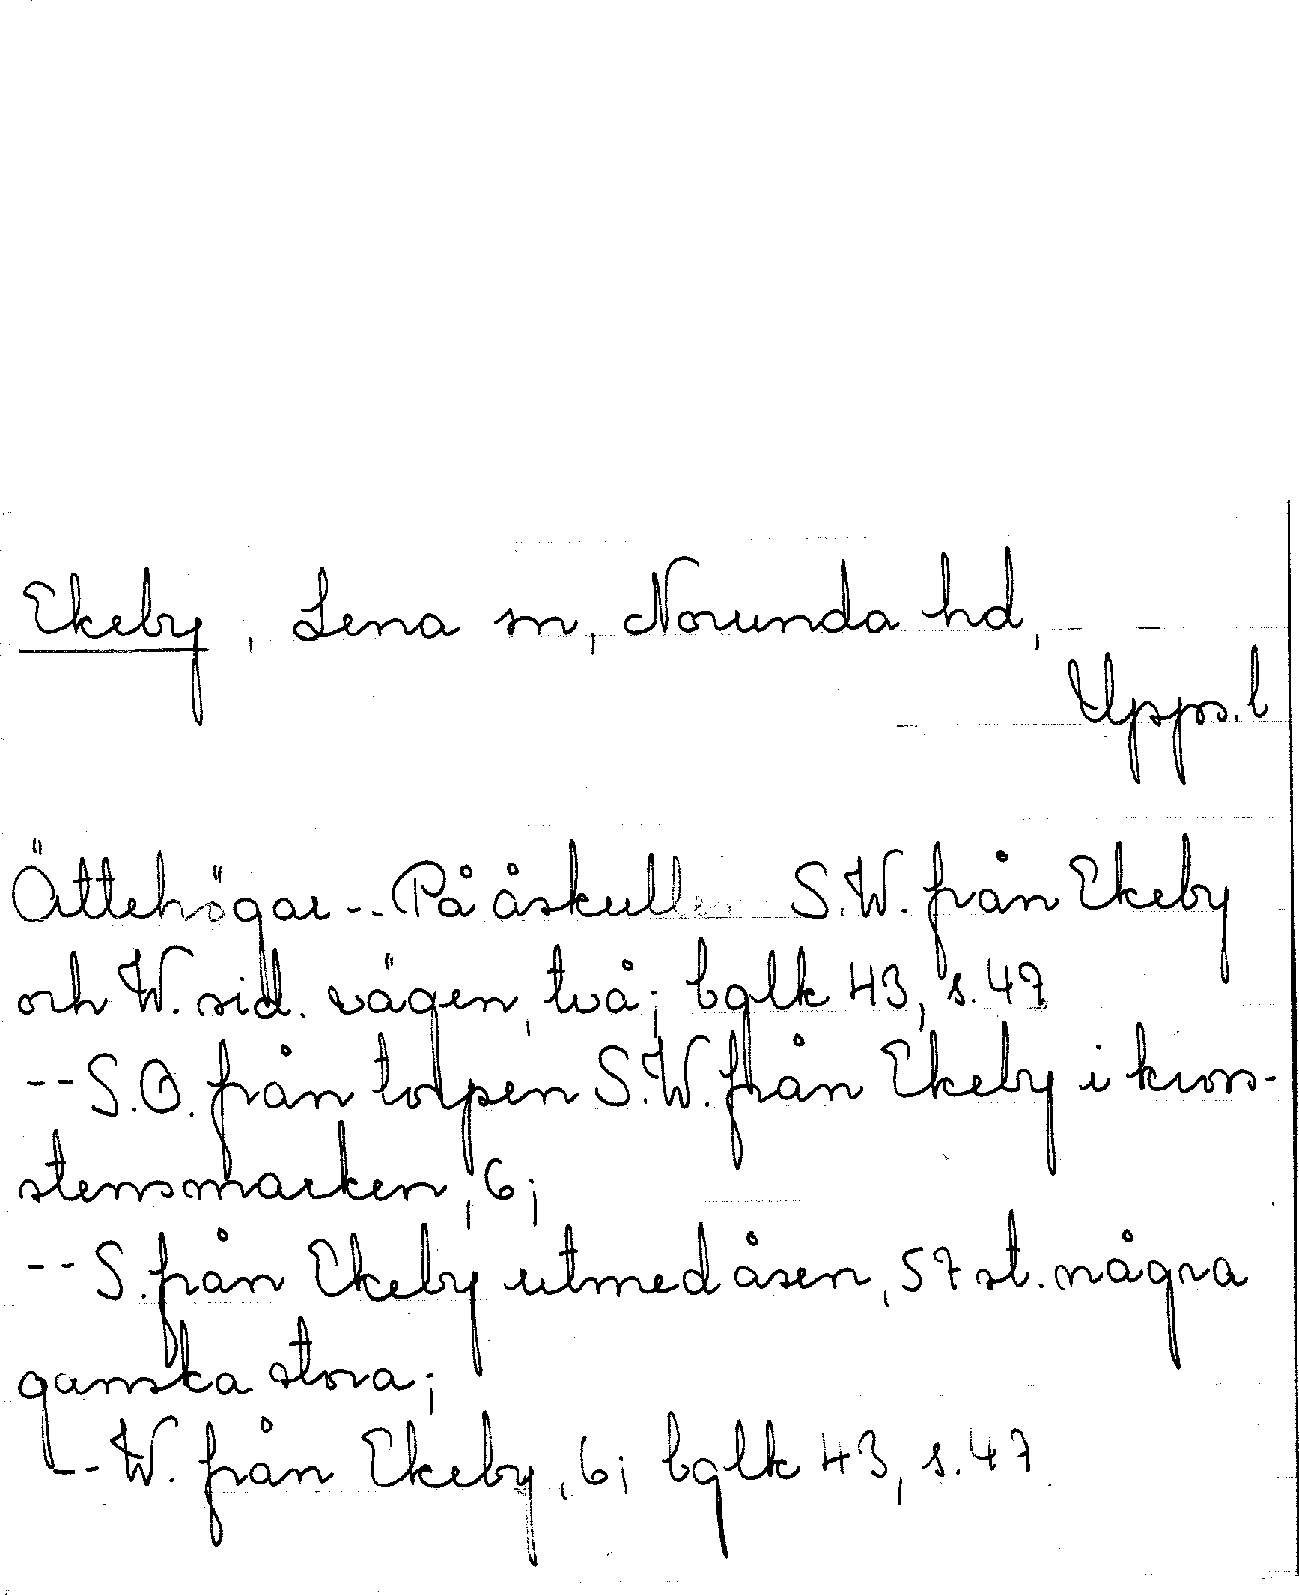 Ekeby, Lena sn, Norunda hd,
Upps. l
Ättehögar -- På åskullen S.W. från Ekeby
och W. sid. vägen, två; bglk 43, s. 47
-- S.O. från torpen S.W. från Ekeby i kron-
stensmarken, 6;
-- S. från Ekeby utmed åsen, 57 st. några
ganska stora;
-- W. från Ekeby, 6; bglk 43, s. 47